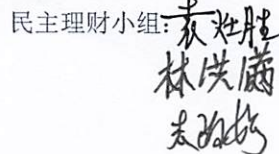 民主理财小组：袁灶胜
林洪满